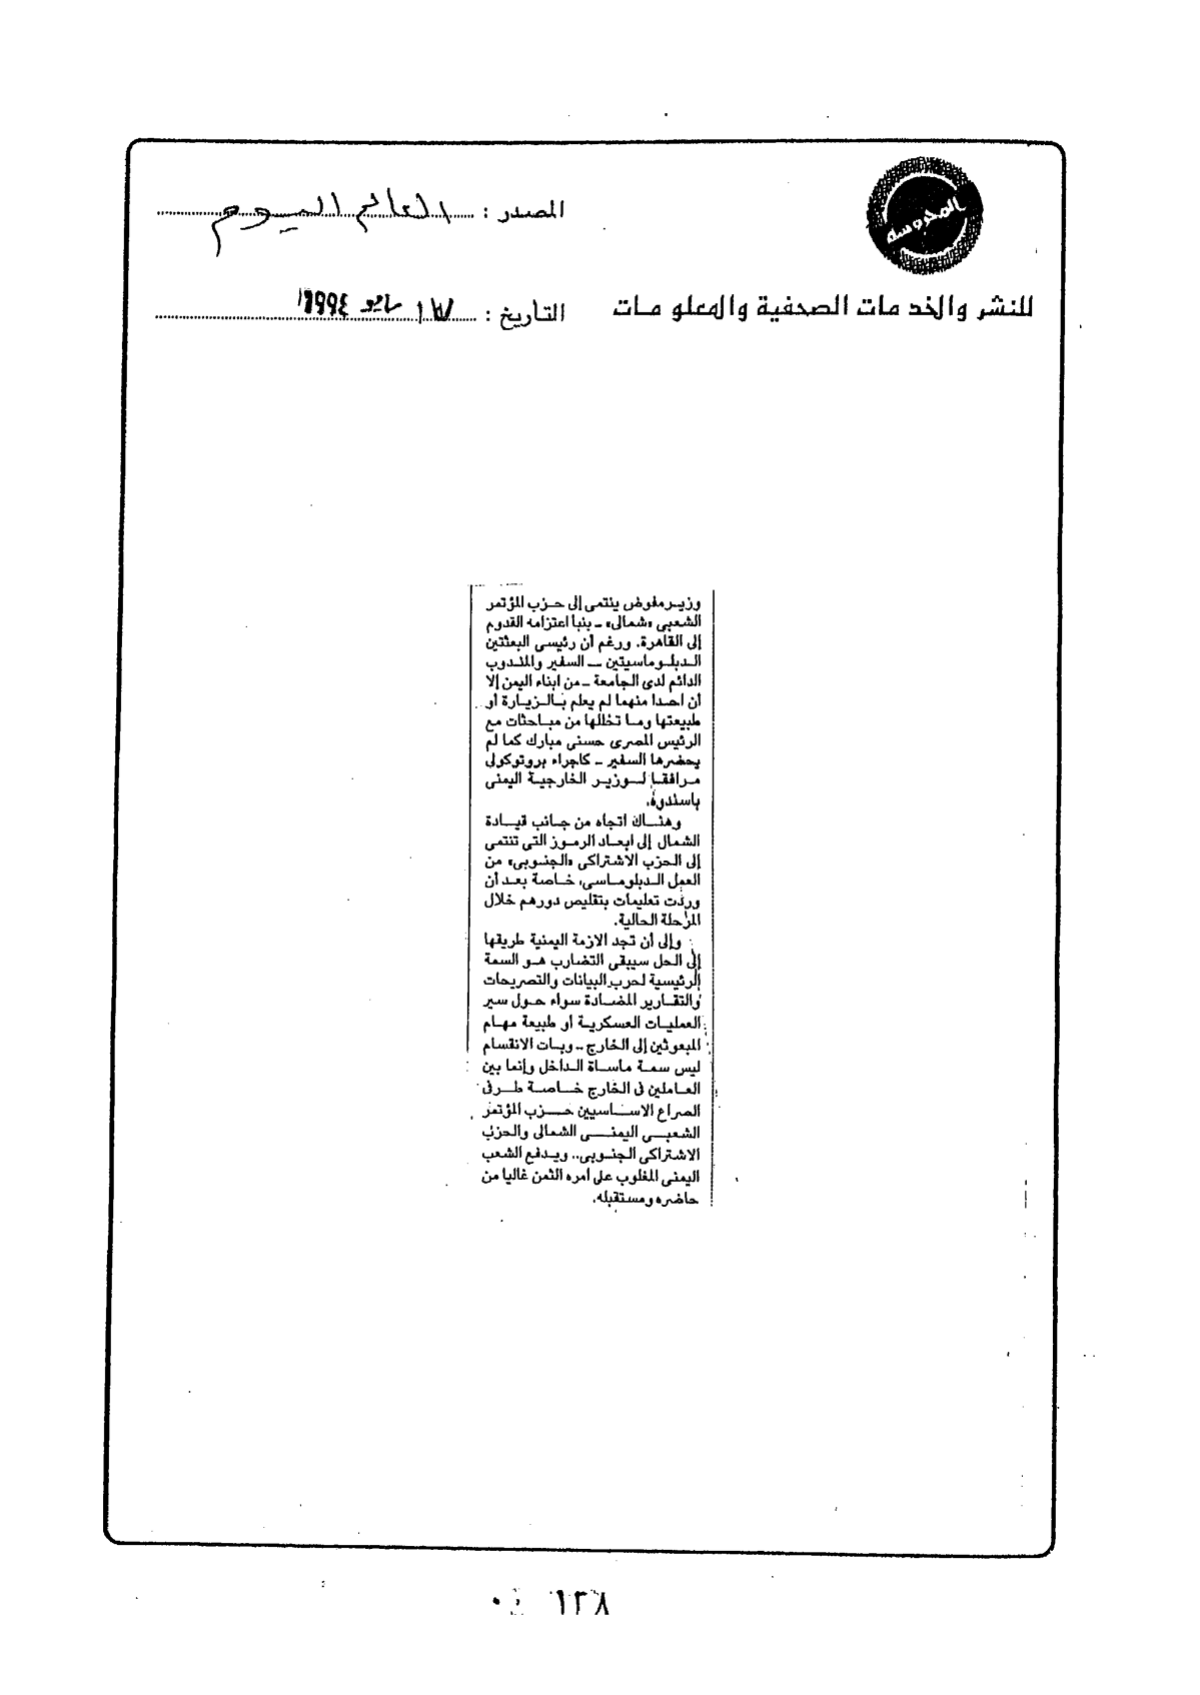 المحروسة
المصدر : العالم اليوم
للنشر والخدمات الصحفية والمعلومات
التاريخ : مايو ١٩٩٤
وزير مفوض ينتمى إلى حزب المؤتمر
الشعبى «شمالى» ـ بنبأ اعتزامه القدوم
إلى القاهرة. ورغم أن رئيسى البعثتين
الدبلوماسيتين ـ السفير والمندوب
الدائم لدى الجامعة ـ من ابناء اليمن إلا
أن احدا منهما لم يعلم بالزيارة أو
طبيعتها وما تخللها من مباحثات مع
الرئيس المصرى حسنى مبارك كما لم
يحضرها السفير ـ كاجراء بروتوكولى
مرافقا لوزير الخارجية اليمنى
باسندوة.
وهناك اتجاه من جانب قيادة
الشمال إلى ابعاد الرموز التى تنتمى
إلى الحزب الاشتراكى «الجنوبى» من
العمل الدبلوماسى، خاصة بعد أن
وردت تعليمات بتقليص دورهم خلال
المرحلة الحالية.
وإلى أن تجد الازمة اليمنية طريقها
إلى الحل سيبقى التضارب هو السمة
الرئيسية لحرب البيانات والتصريحات
والتقارير المضادة سواء حول سير
العمليات العسكرية أو طبيعة مهام
المبعوثين إلى الخارج .. وبات الانقسام
ليس سمة ماساة الداخل وإنما بين
العاملين فى الخارج خاصة طرفى
الصراع الاساسيين حزب المؤتمر
الشعبى اليمنى الشمالى والحزب
الاشتراكى الجنوبى.. ويدفع الشعب
اليمنى المغلوب على امره الثمن غاليا من
حاضره ومستقبله.
١٣٨